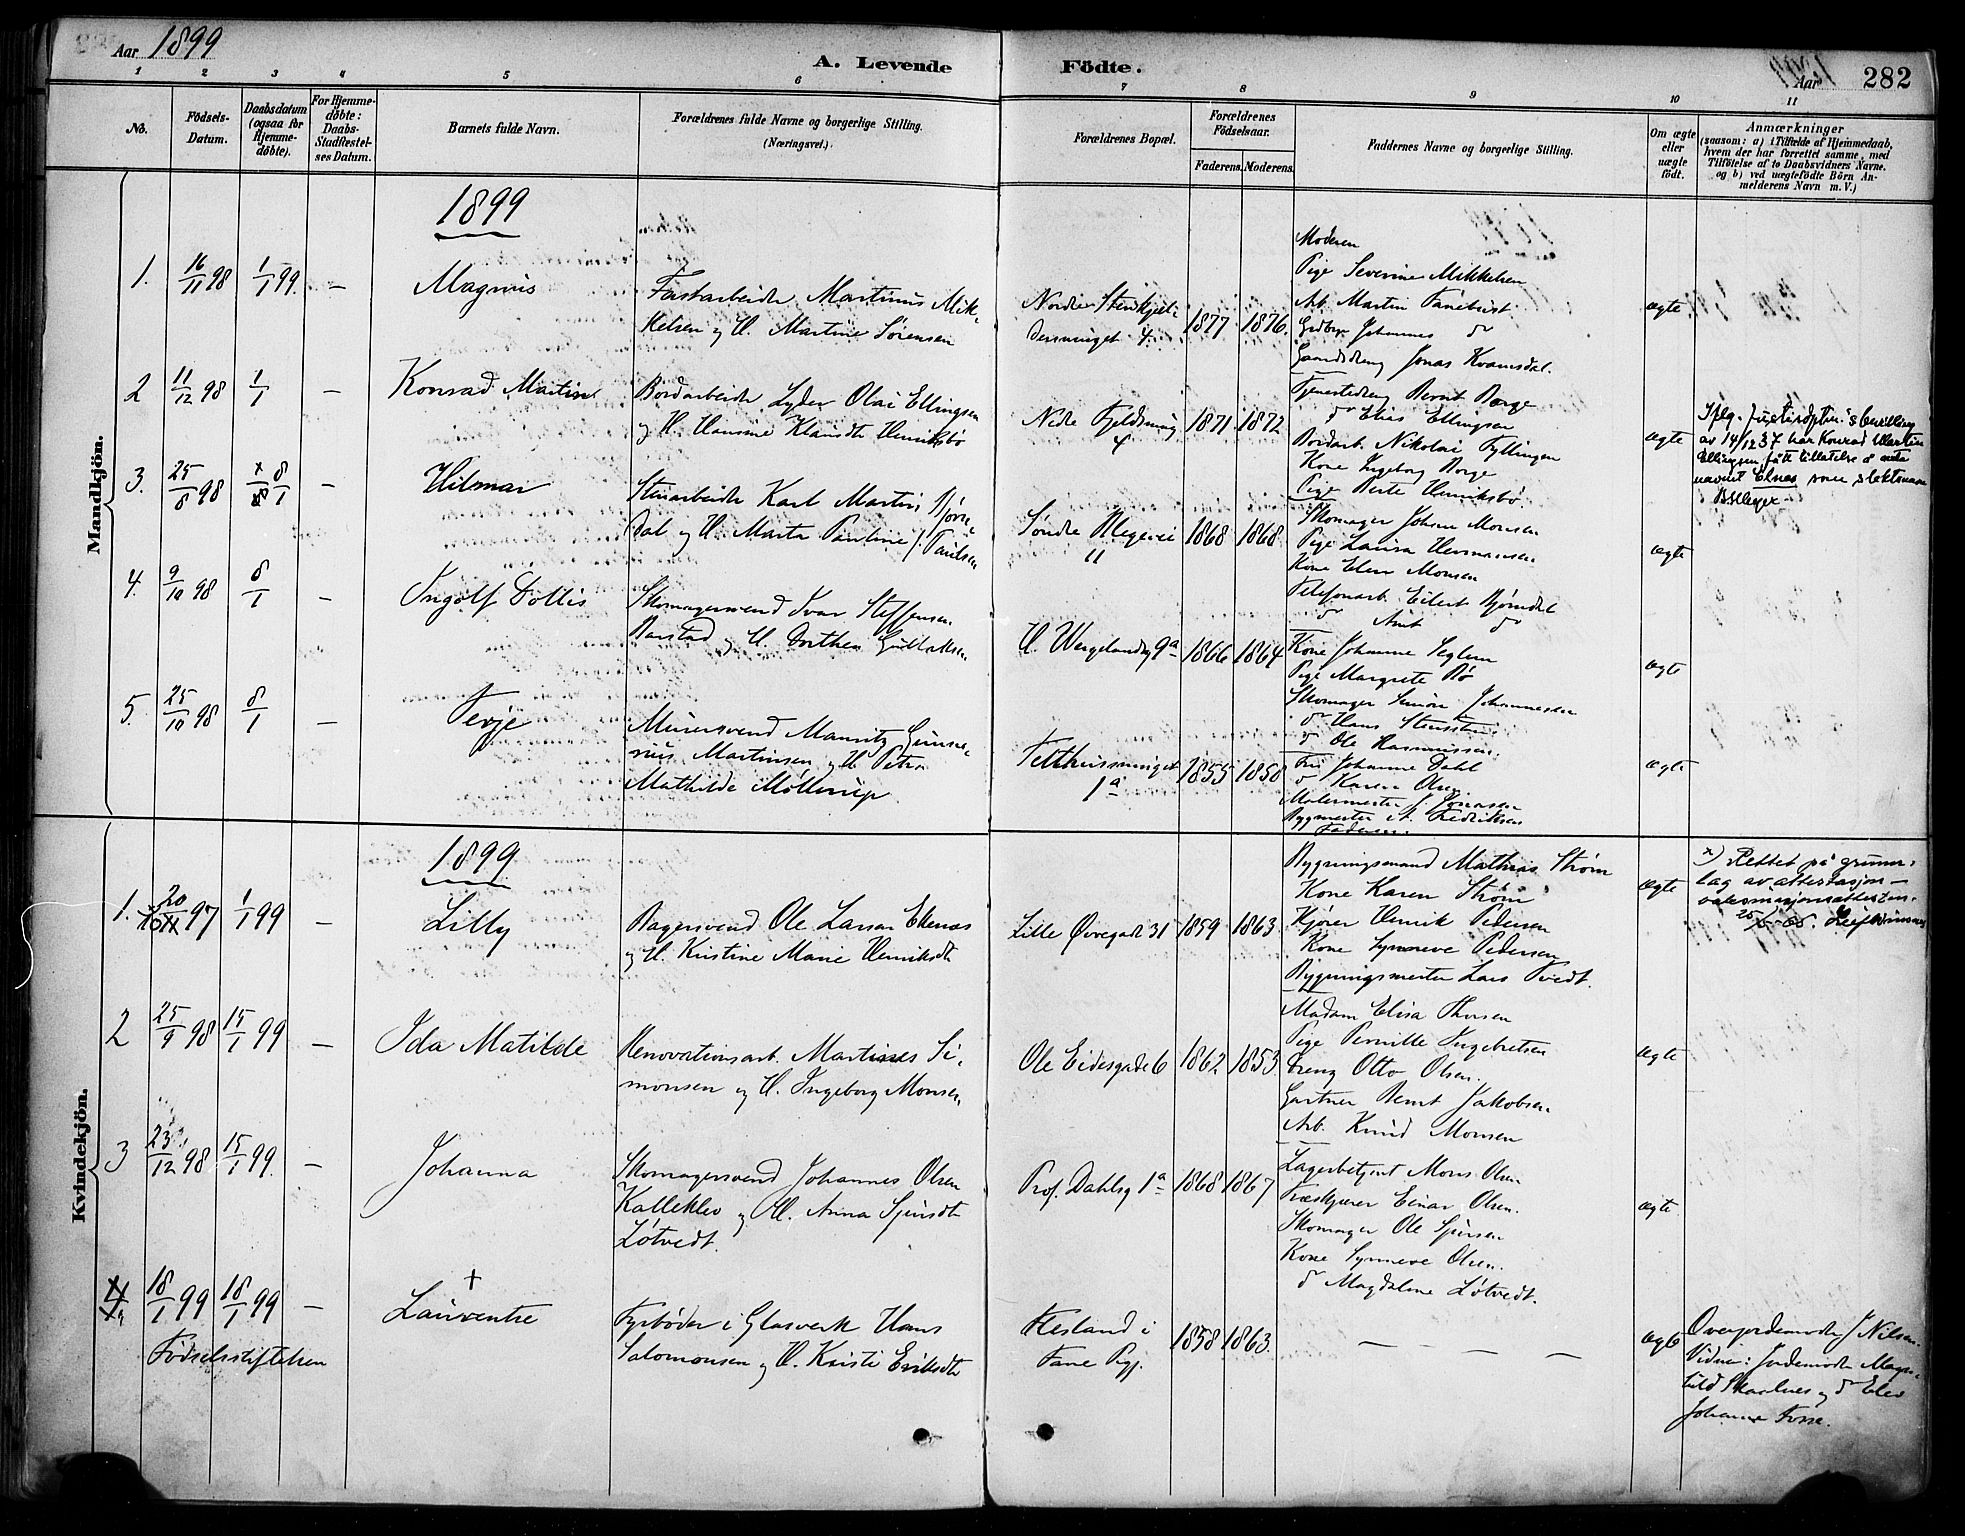 Aar 1899
A. Levende Födte.
Aar
282
1 2 3 4 5 6 7 8 9 10 11
No.
Födsels-Datum.
Daabsdatum (ogsaa for Hjemme-döbte).
For Hjemme-döbte: Daabs-Stadfæstelses Datum.
Barnets fulde Navn.
Forældrenes fulde Navne og borgerlige Stilling. (Næringsvei.)
Forældrenes Bopæl.
Forældrenes Födselsaar.
Faderens. Moderens.
Faddernes Navne og borgerlige Stilling.
Om ægte eller uægte født.
Anmærkninger
(saasom: a) i Tilfælde af Hjemmedaab,
hvem der har forrettet samme, med
Tilföielse af to Daabsvidners Navne.
og b) ved uægtefödte Börn An-
melderens Navn m. V.)
Mandkjön.
1899
1. 16/11 98 1/1 99. — Magnus
Fastarbeider Martinus Mik-
kelsen og H. Martine Sørensen
Nordre Stenkjel-
dersmuget 4.
1877 1876.
Moderen
Pige Severine Mikkelsen
Arb. Martin Tanekvist
Johannes do
Gaardsdreng Jonas Kvamsdal.
ægte
2 11/12 98 1/1 — Konrad Martin
Bordarbeider Lyder Olai Ellingsen
og H. Hansine Klausdtr Henriksbø
Nedre Fjeldsmug
4
1871 1872
Tjenestedreng Bernt Borge
do Elias Ellingsen
Bordarb. Nikolai Fyllingen
Kone Ingeborg Borge
Pige Berte Henriksbø.
ægte
Iflg. justisdptm.s bevilling
av 14/12 37 har Konrad Martin
Ellingsen fått tillatelse å
navnet Elnes som slektsnavn
3. 25/8 98 8/1 — Hilmar
Stenarbeider Karl Martin Bjørn-
dal og H. Marta Pauline f. Paulsen
Søndre Allegaei
11
1868 1868
Skomager Johan Monsen
Pige Laura Hermansen
Kone Elen Monsen
Telefonarb. Eilert Bjørndal
do Amt do
ægte
4. 9/10 98 8/1 — Ingolf Dottis
Skomagersvend Ivar Steffensen
Barstad og H. Dorthea Gullaksen
H. Wergelandsg 9a
1866 1864
Kone Johanne Seglem
Pige Margrete Bø
Skomager Simon Johannesen
do Hans Stensstu
do Ole Rasmussen.
ægte
5. 25/10 98 8/1 — Terje
Murersvend Mauritz Gunne-
rius Martinsen og H. Petra
Mathilde Møllerup.
Telthussmuget
1a
1855 1858
Fru Johanne Dahl
do Karen Olsen
Malermester J. Jonasen
Bygmester A. Fredriksen
Faderen.
ægte
Kvindekjön.
1899
1. 20/11 97 1/1 99 — Lilly
Bagersvend Ole Larsen Ekenæs
og H. Kristine Marie Henriksdtr
Lille Øvregade 31
1859 1863
Bygningsmand Mathias Strøm
Kone Karen Strøm
Kjører Henrik Pedersen
Kone Synneve Pedersen
Bygningsmester Lars Tvedt.
ægte
x) Rettet på grunn-
lag av attestasjon
vaksinasjonsattesten.
2 25/9 98 15/1 99 — Ida Matilde
Renovationsarb. Martines Si-
monsen og H. Ingeborg Monsen.
Ole Eidesgade 6
1862 1853.
Madam Elisa Thorsen
Pige Pernille Ingebretsen
Dreng Otto Olsen.
Gartner Bernt Jakobsen
Arb. Knud Monsen
ægte
3 23/12 98 15/1 99. — Johanna
Skomagersvend Johannes Olsen
Kalleklev og H. Anna Sjursdtr
Løtvedt.
Prof. Dahlsg 1a
1868 1867
Lagerbetjent Mons Olsen
Træskjærer Einar Olsen.
Skomager Ole Sjursen
Kone Synneve Olsen.
do Magdalene Løtvedt.
ægte
4 18/1 99 18/1 99 — Lauventse †
Fødselsstiftelsen
Fyrbøder i Glasverk Hans
Salomonsen og H. Kristi Eriksdtr
Flesland i
Fane Pgj.
1858 1863.
— — —
ægte
Overjordemoder J Nilsen.
Vidne: Jordemoder Magn-
hild Skaalnes og do Elev
Johanne Fosse.